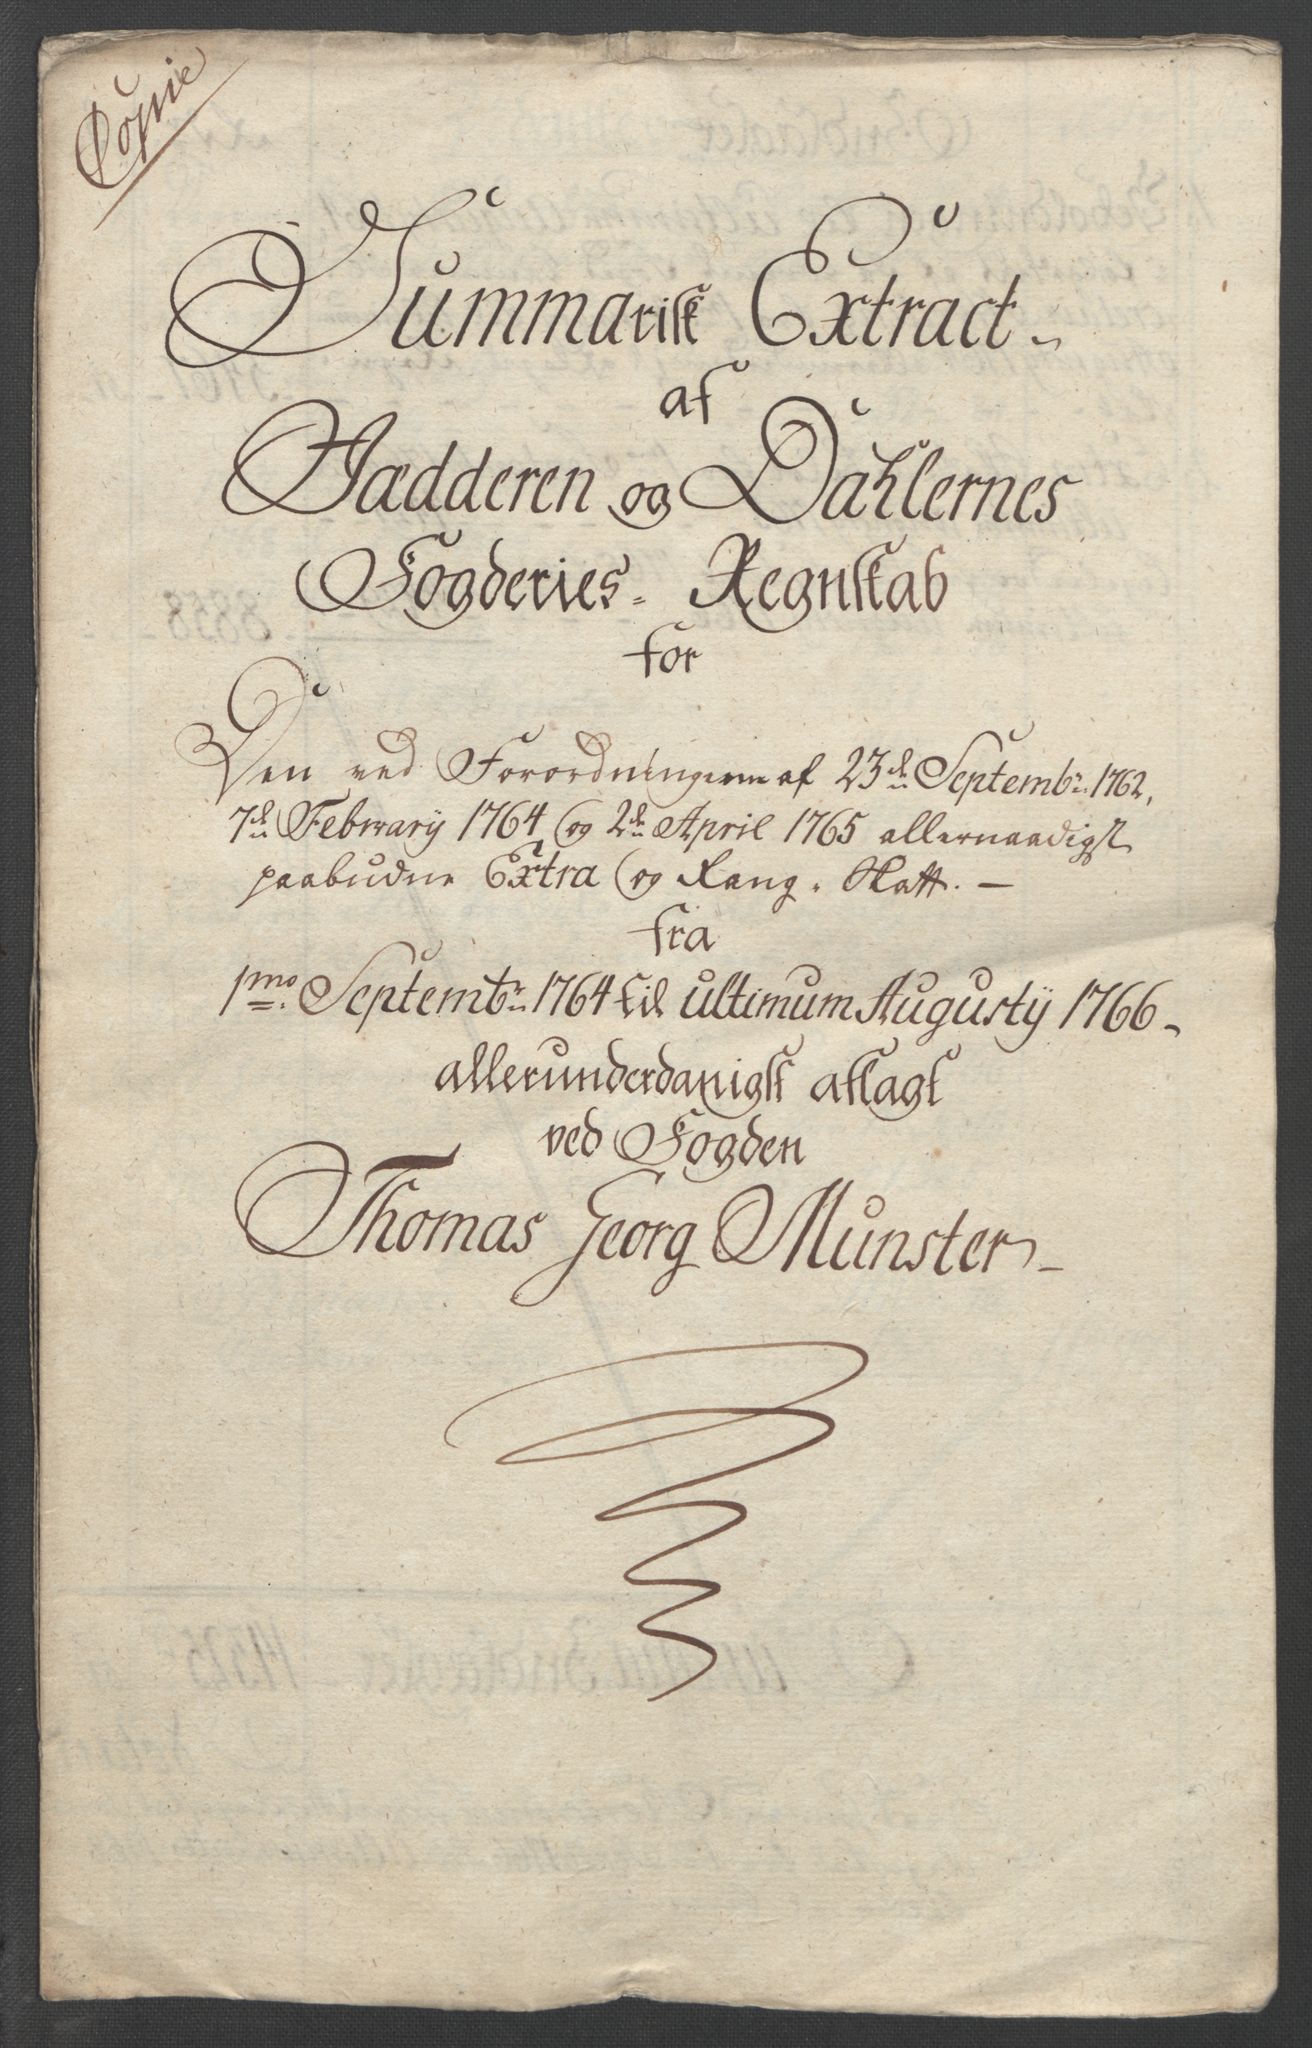 Copie
Summarisk Extract
af
Jædderen og Dahlernes
Fogderies Regnskab
for
Den ved Forordningerne af 23de Septembr: 1762,
7de February 1764 og 2de April 1765 allernaadigst
paabudne Extra og Rang-Skatt. —
fra
1mo Septembr 1764 til ultimum Augustÿ 1766
allerunderdanigst aflagt
ved Fogden
Thomas Georg Munster